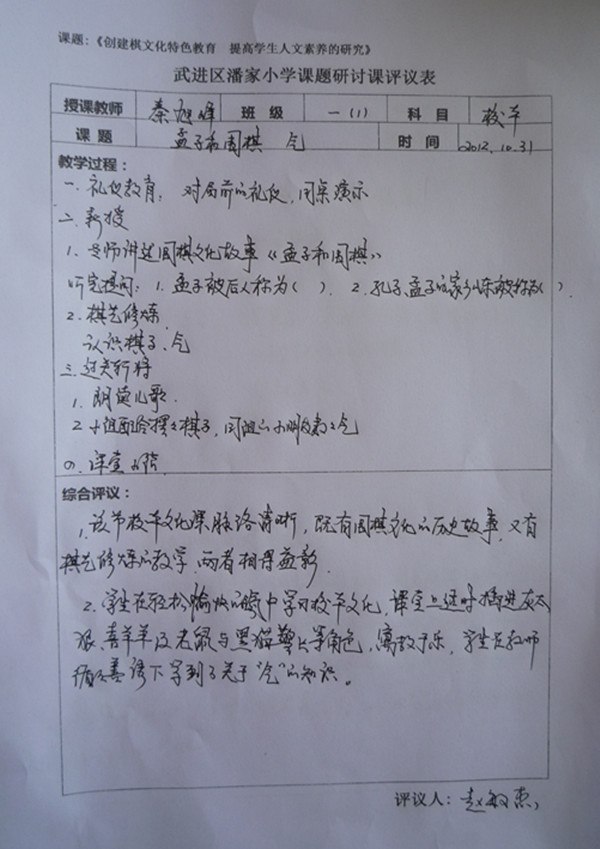 课题：《创建棋文化特色教育 提高学生人文素养的研究》
武进区潘家小学课题研讨课评议表
授课教师 秦旭峰 班级 一（1） 科目 校本
课题 孟子和围棋 气 时间 2012.10.31
教学过程：
一、礼仪教育： 对局前的礼仪，同桌演示
二、新授
1、老师讲述围棋文化故事《孟子和围棋》
听完提问：1.孟子被后人称为（ ）. 2.孔子、孟子的家乡山东被称为（ ）.
2.棋艺修炼
认识棋子、气
三、过关斩将
1.朗读儿歌.
2.小组配合摆摆棋子，同组的小朋友数数气
四、课堂小结
综合评议：
1.该节校本文化课脉络清晰，既有围棋文化的历史故事，又有
棋艺修炼的教学，两者相得益彰.
2.学生在轻松愉快的氛围中学习校本文化，课堂上适时插进灰太
狼、喜羊羊及老鼠与黑猫警长等角色，寓教于乐，学生在教师
循循善诱下学到了关于“气”的知识。
评议人：赵敏